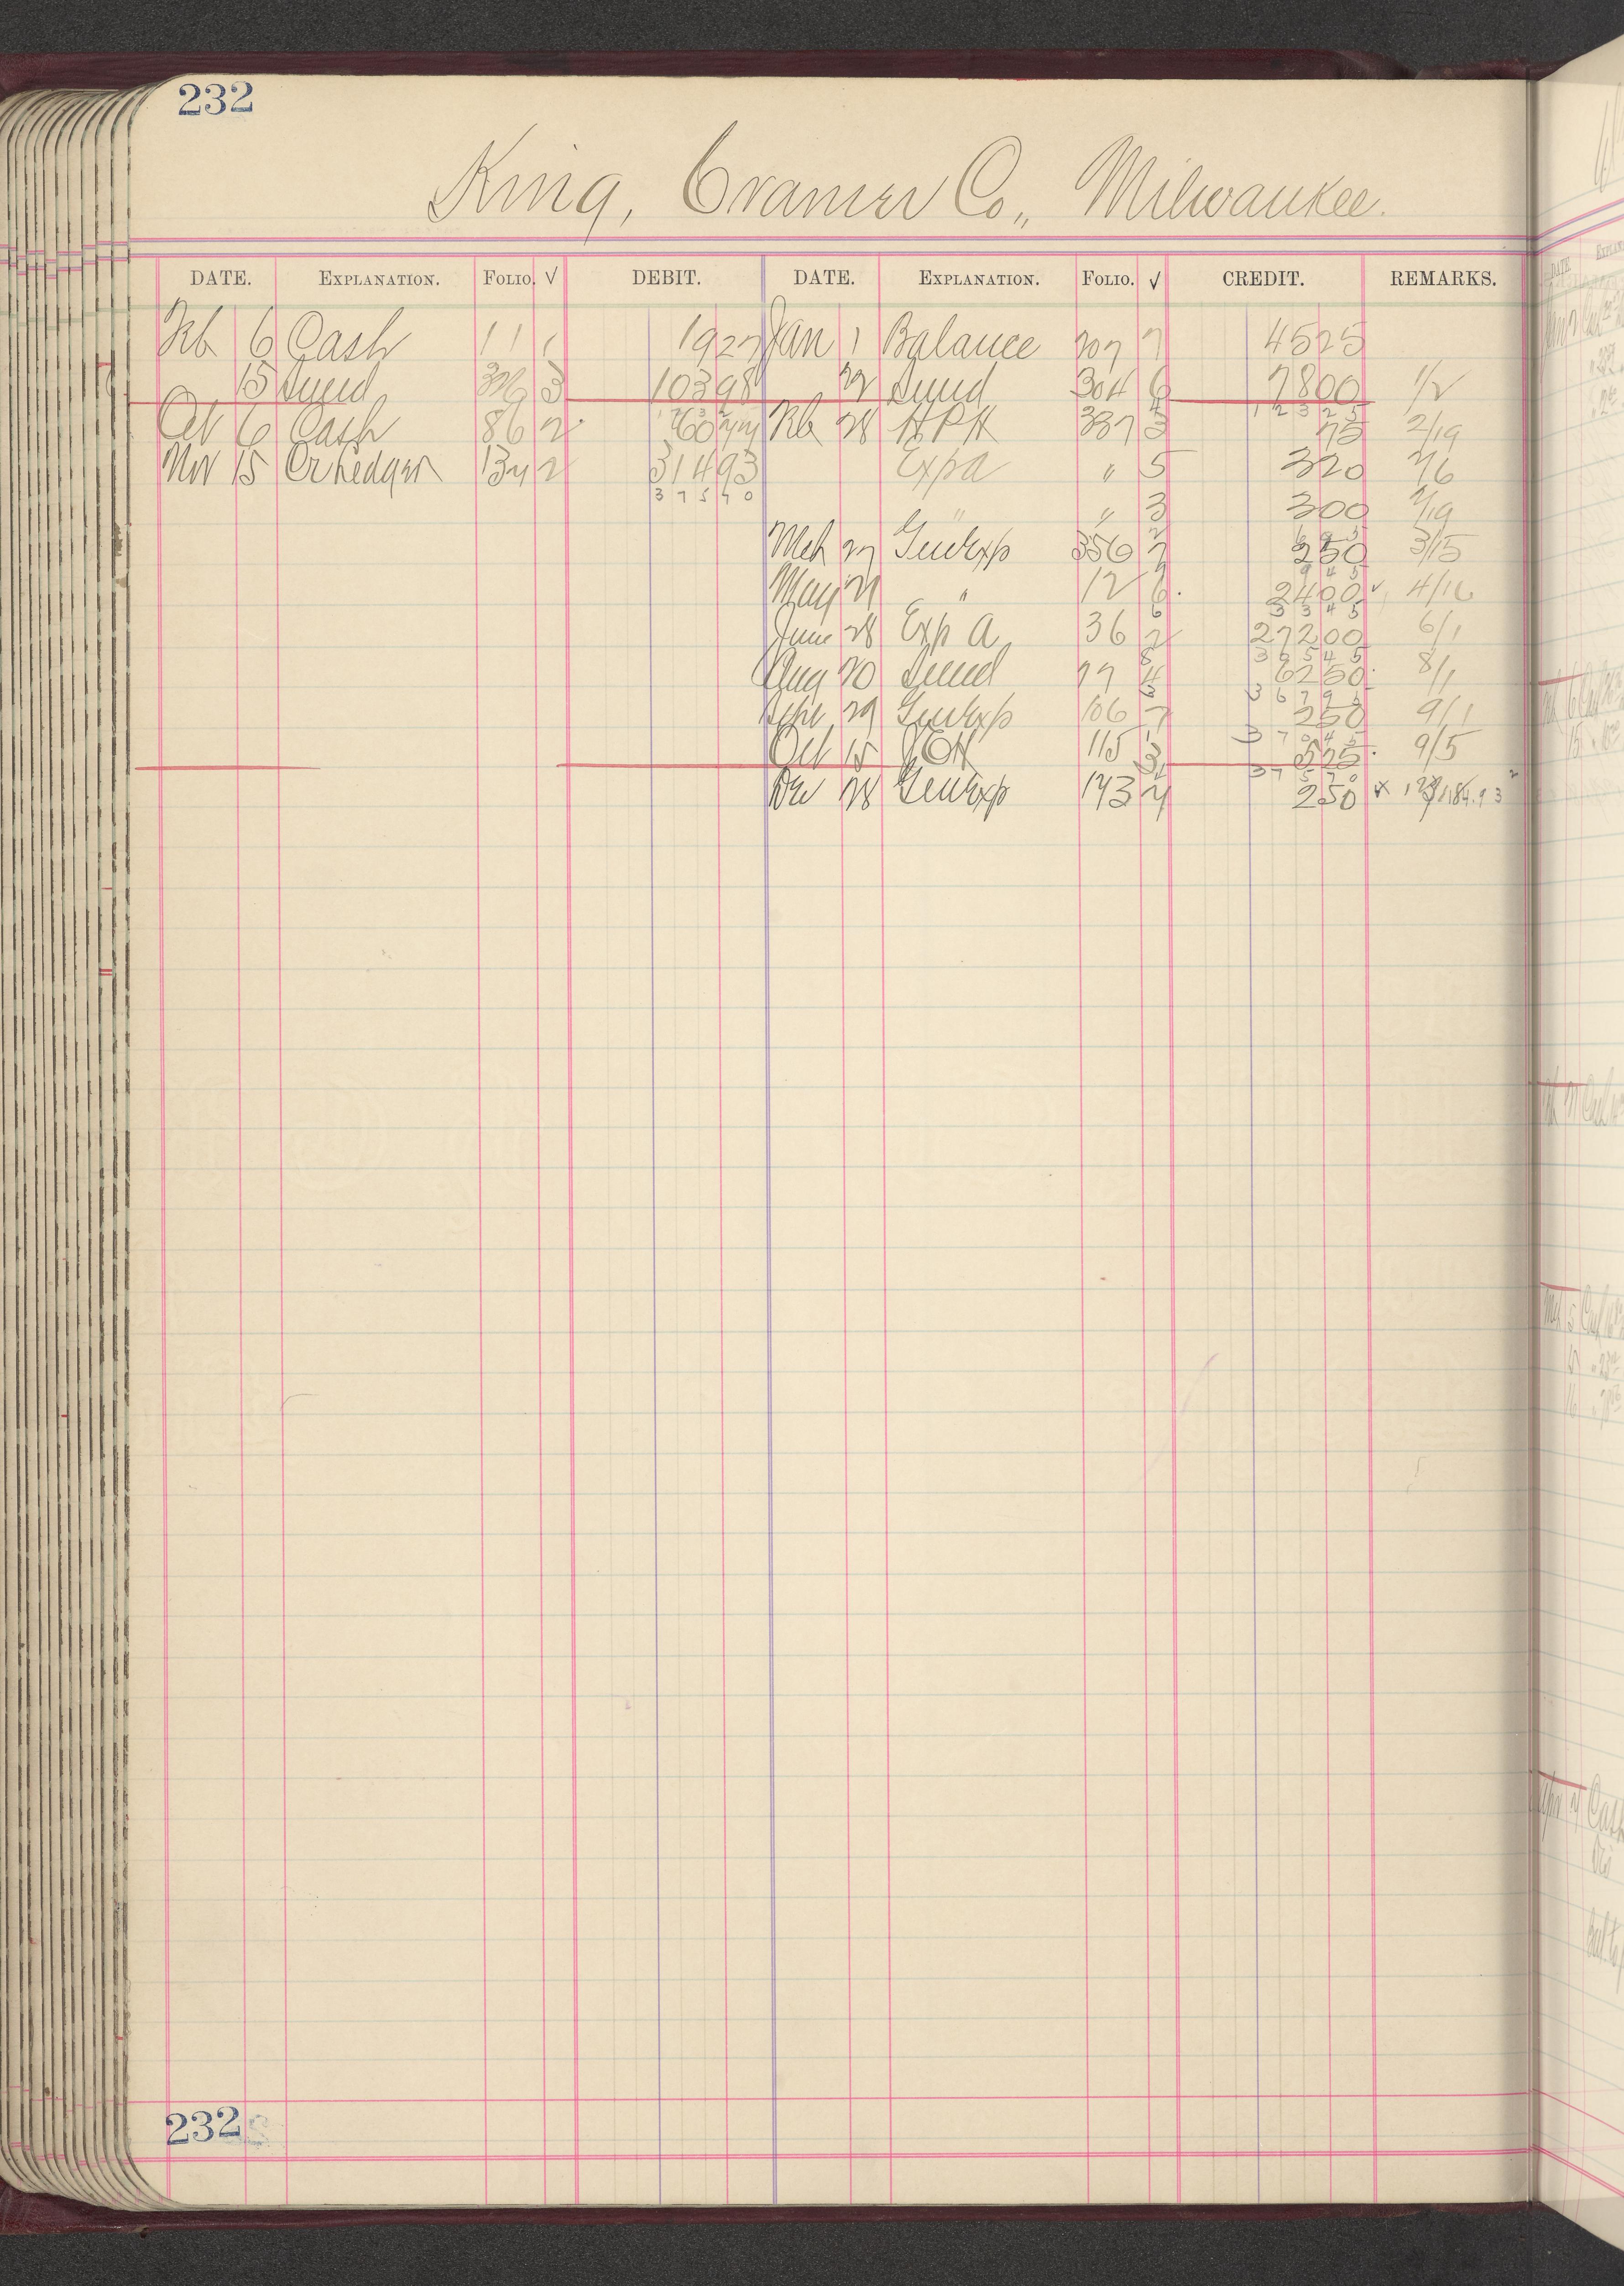 232
King, Cramer Co., Milwaukee.
DATE. EXPLANATION. FOLIO. √ DEBIT. DATE. EXPLANATION. FOLIO. √ CREDIT. REMARKS.
Feb 6 Cash 11 1 1927 Jan 1 Balance 207 7 4525
15 Sund 326 3 10398 22 Sund 304 6 7800 1/2
12325
Oct 6 Cash 86 2 6077 Feb 28 HPH 337 3 75 2/19
Nov 15 Cr Ledger 134 2 31493 Exp a " 5 320
37570
" " 3 300 2/19
Mch 27 Genl Exp 356 250 3/15
May 21 " 12 6 2400 4/16
June 28 Exp a 36 2 27200 6/1
Aug 20 Sund 77 4 6250 8/1
Sept 29 Genl Exp 106 7 250 9/1
Oct 15 115 3 525 9/5
37570
Dec 28 Genl Exp 143 4 250
232